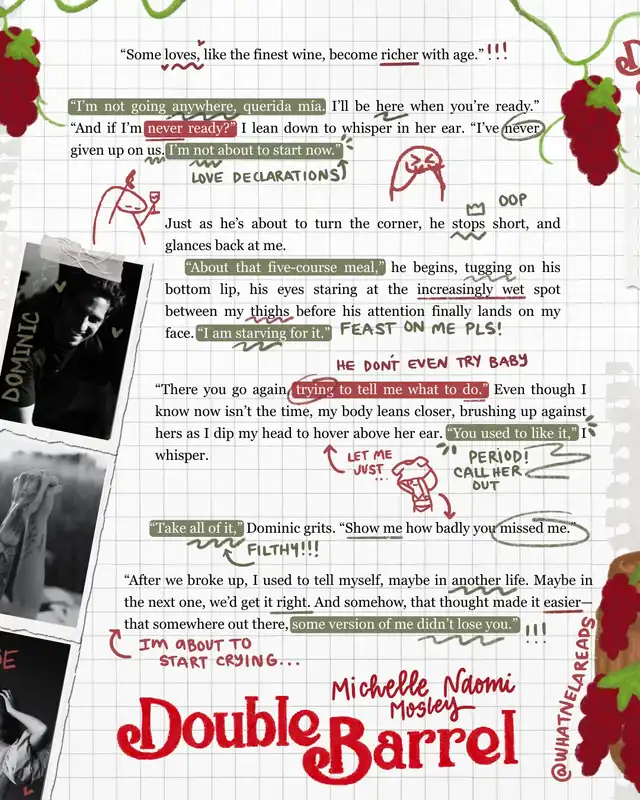 “Some loves, like the finest wine, become richer with age.” !!!
“I’m not going anywhere, querida mía. I’ll be here when you’re ready.”
“And if I’m never ready?” I lean down to whisper in her ear. “I’ve never
given up on us. I’m not about to start now.”
LOVE DECLARATIONS
OOP
Just as he’s about to turn the corner, he stops short, and
glances back at me.
“About that five-course meal,” he begins, tugging on his
bottom lip, his eyes staring at the increasingly wet spot
between my thighs before his attention finally lands on my
face. “I am starving for it.” FEAST ON ME PLS!
DOMINIC
HE DON'T EVEN TRY BABY
“There you go again, trying to tell me what to do.” Even though I
know now isn’t the time, my body leans closer, brushing up against
hers as I dip my head to hover above her ear. “You used to like it,” I
whisper.
LET ME
JUST...
PERIOD!
CALL HER
OUT
“Take all of it,” Dominic grits. “Show me how badly you missed me.”
FILTHY!!!
“After we broke up, I used to tell myself, maybe in another life. Maybe in
the next one, we’d get it right. And somehow, that thought made it easier—
that somewhere out there, some version of me didn’t lose you.” !!!
I'M ABOUT TO
START CRYING...
Michelle Naomi
Mosley
Double
Barrel
@WHATNELAREADS